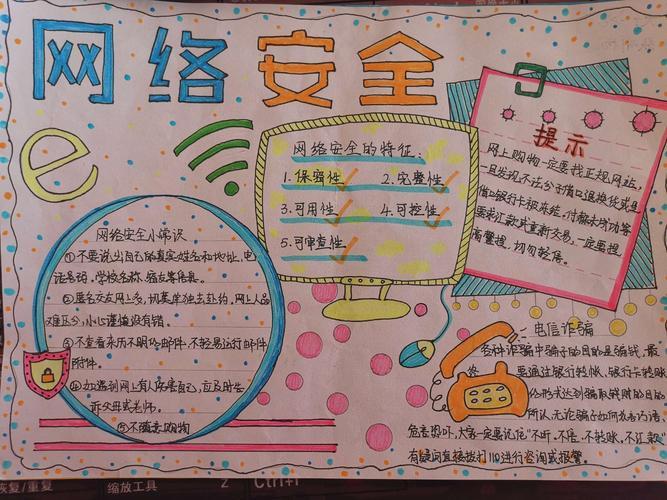 网络安全
e
网络安全的特征:
1.保密性 2.完整性
3.可用性 4.可控性
5.可审查性
提示
网上购物一定要找正规网站,
一旦发现不法分子借口退换货或是
借口银行卡被冻结,付款未成功等
要求汇款或重新交易,一定要提
高警惕,切勿轻信。
网络安全小常识
①不要说出自己的真实姓名和地址,电
话号码,学校名称,
②匿名交友网上多,切莫单独去赴约,网上人品
难区分,小心谨慎没有错。
③不查看来历不明的邮件,不轻易运行邮件
附件。
④如遇到网上有人伤害自己,应及时告
诉父母或老师。
⑤不随意购物
电信诈骗
各种诈骗中骗子的目的是骗钱,最
要通过银行转帐,银行卡转账
形式达到骗取钱财的目的
所以,无论骗子如何花言巧语,
危言恐吓,大家一定要记住"不听、不信、不转账、不汇款"
有疑问直接拨打110进行咨询或报警。
恢复/重复 缩放工具 Z Ctrl+